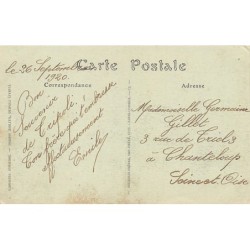 Carte Postale
Correspondance
Adresse
le 26 Septembre
1920
Bon
Souvenir
de Tripoli.
Ton frère qui t'embrasse
affectueusement
Emile
Mademoiselle Germaine
Gillot
3 rue de Triels
à Chanteloup
Seine et Oise